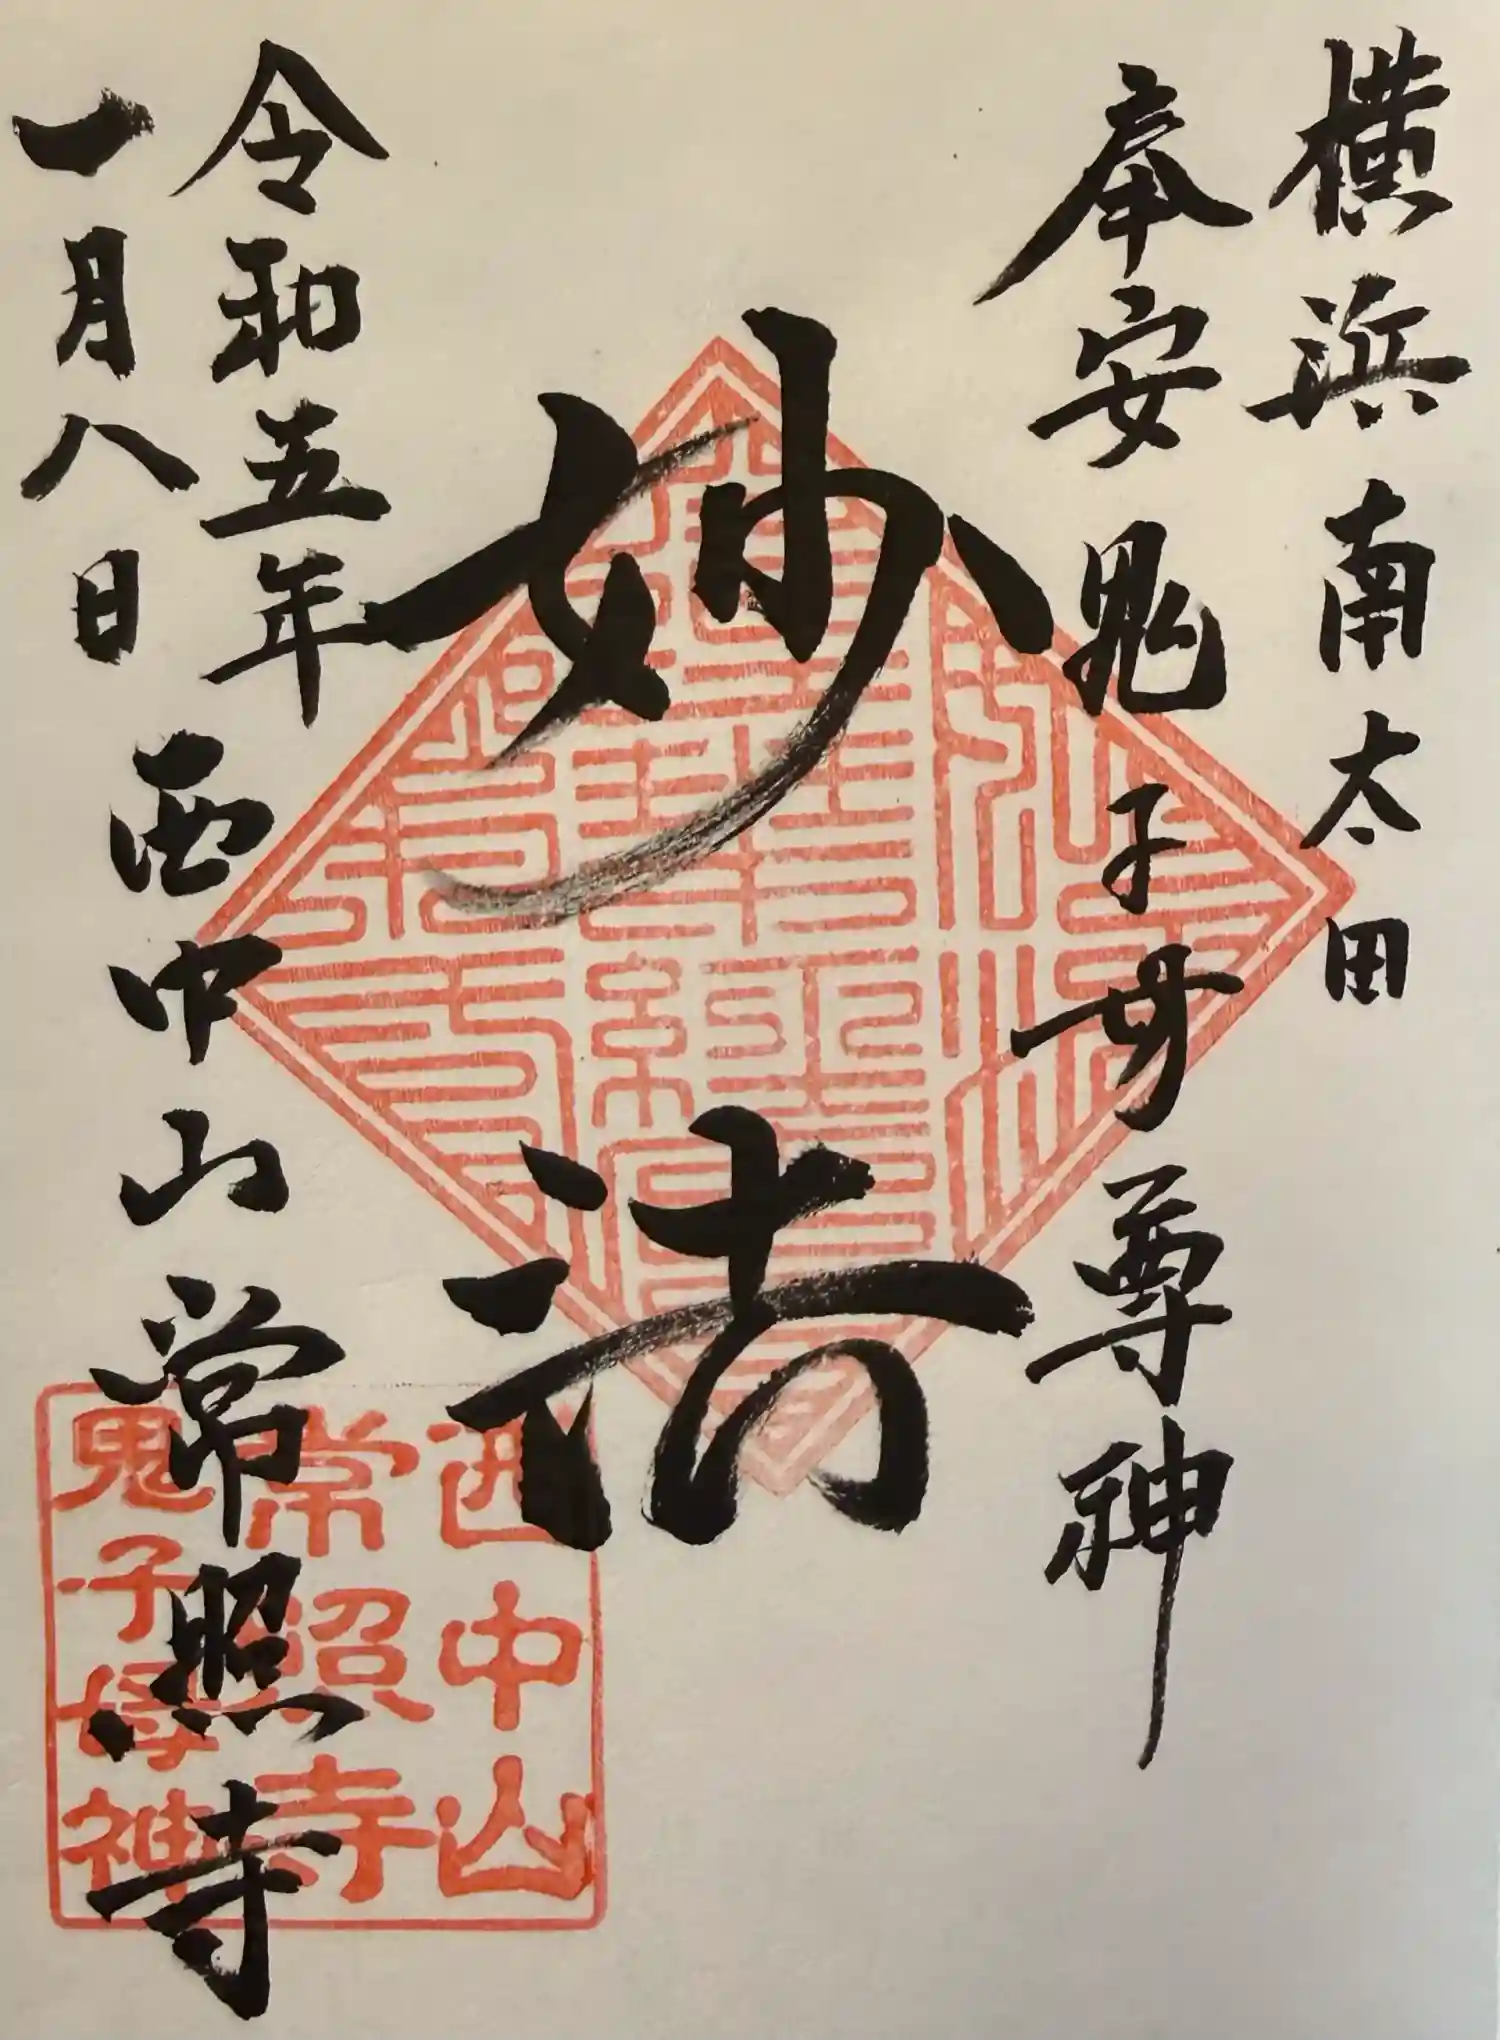 横浜南太田
奉安鬼子母尊神
妙法
令和五年
一月八日
西中山常照寺
西中山
常照寺
鬼子母神